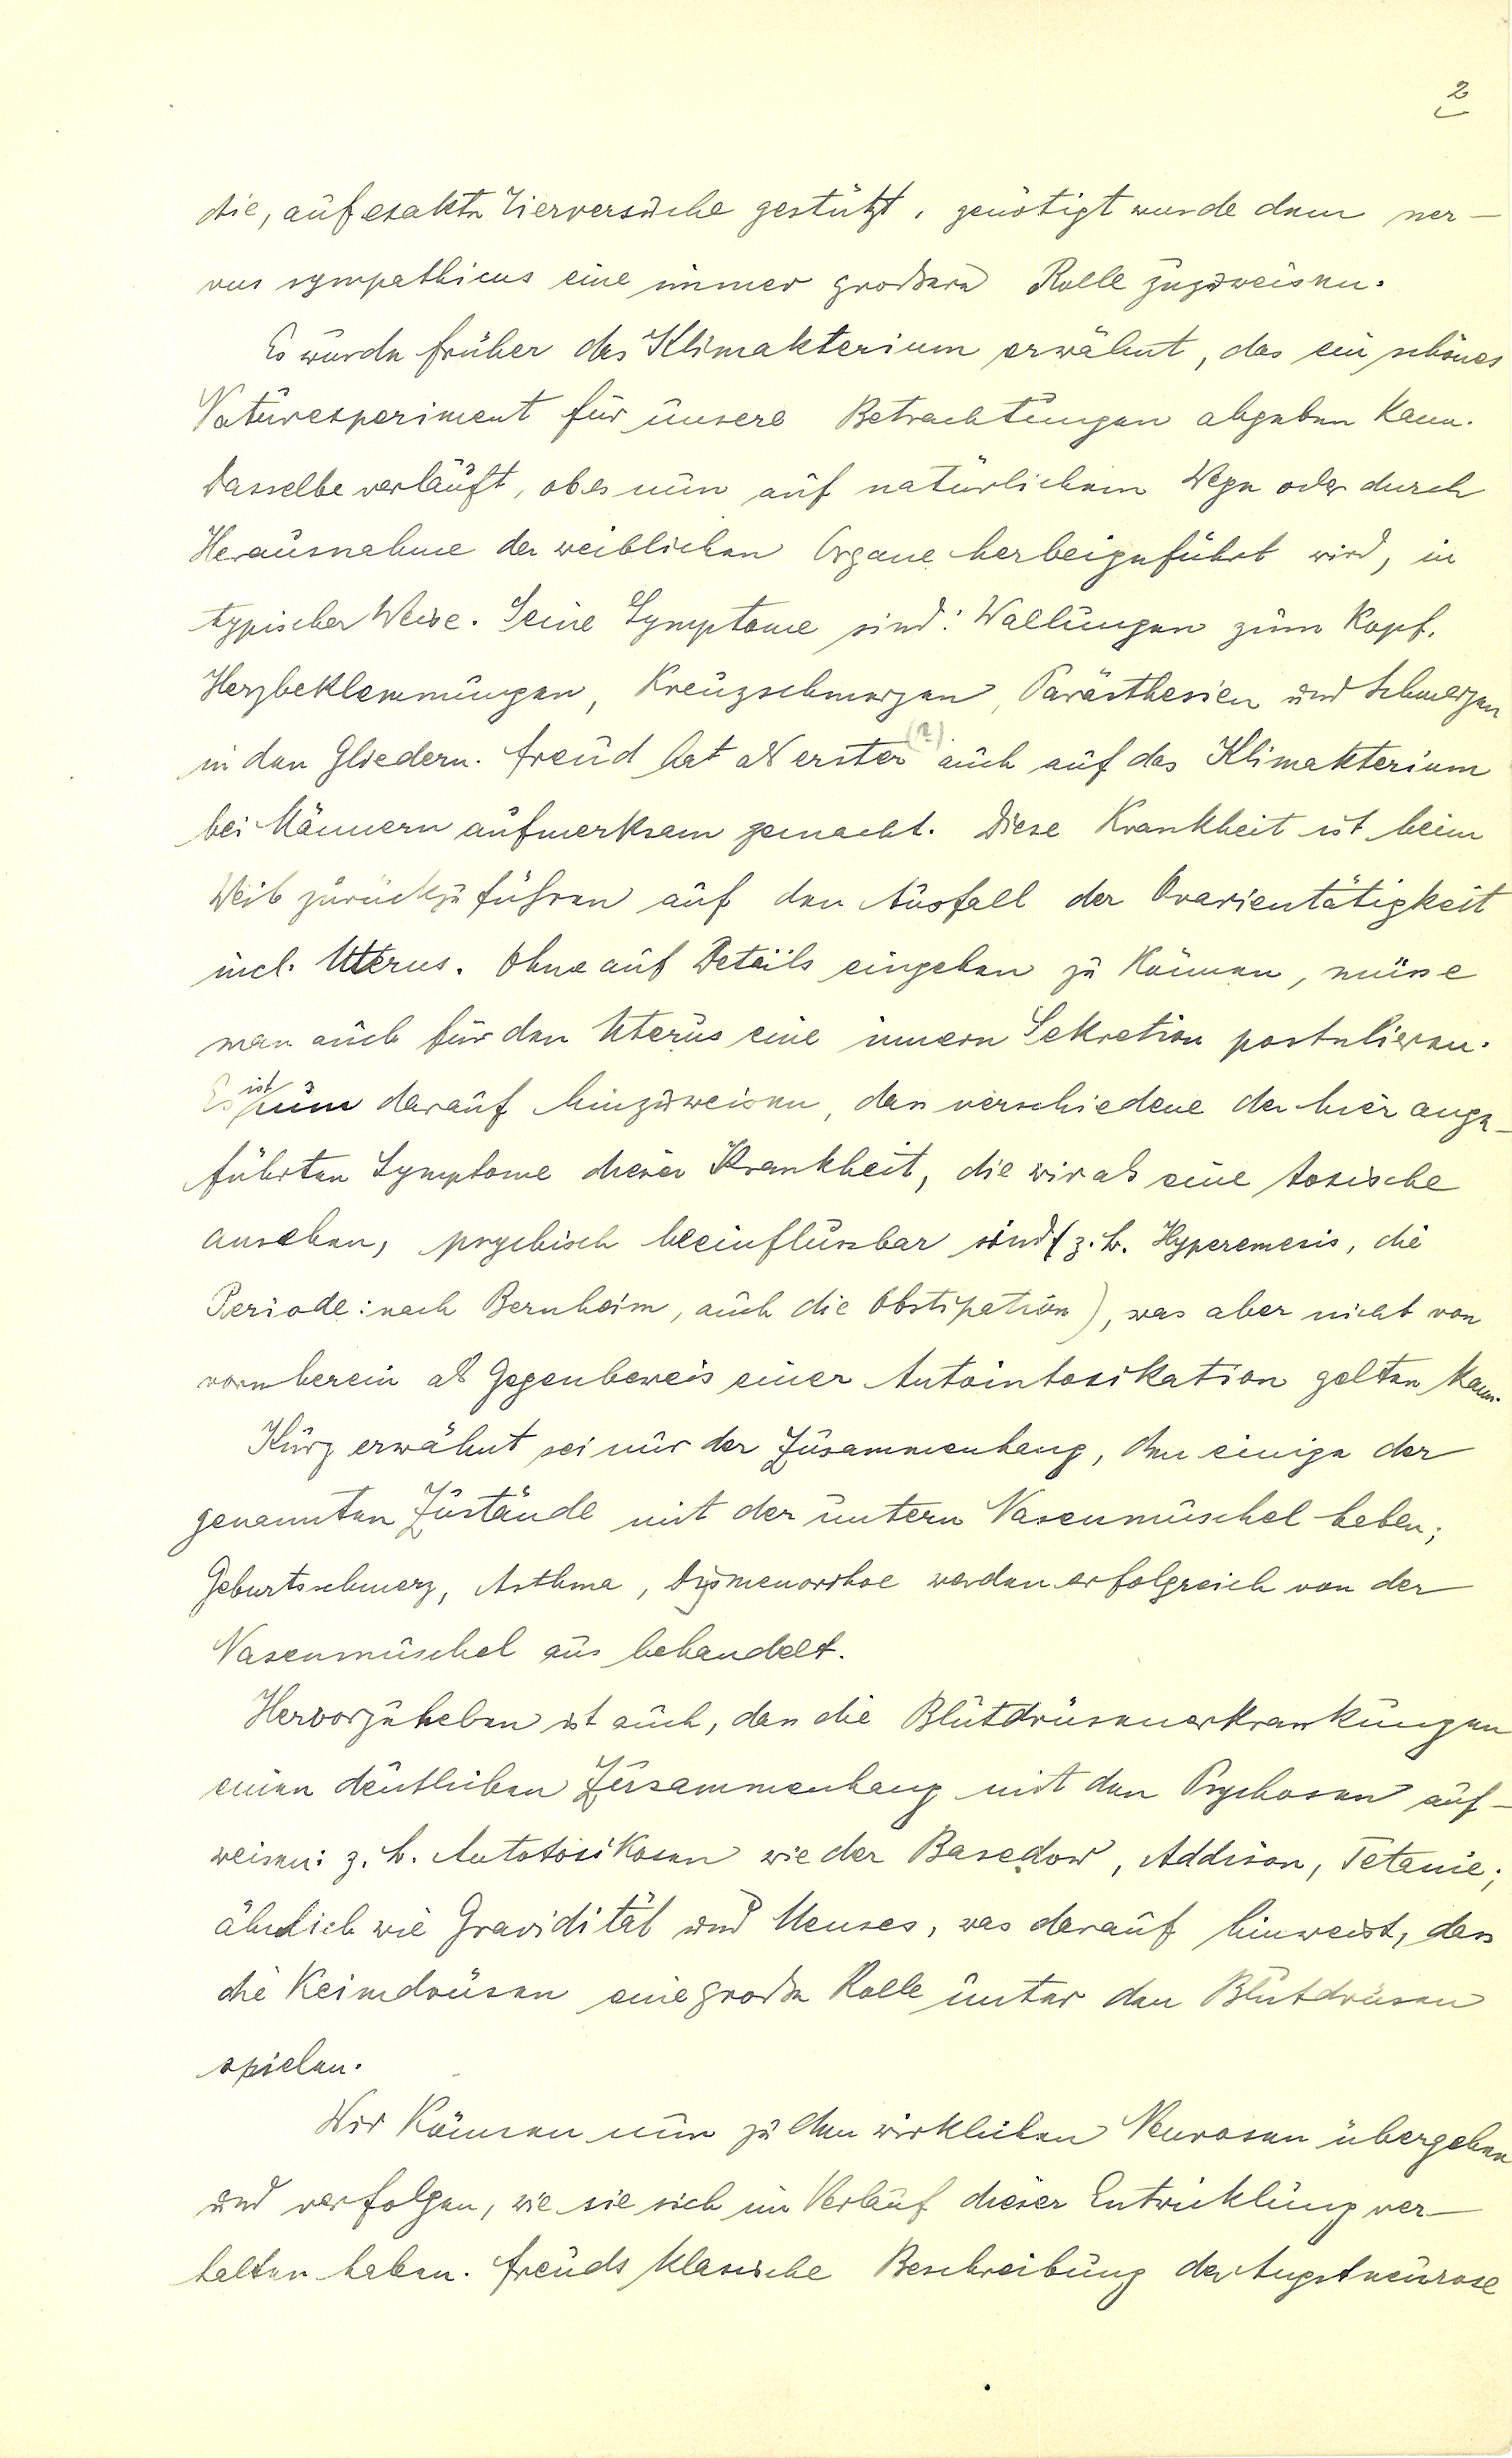 2
die, auf exakte Tierversuche gestützt, genötigt wurde dem ner-
vus sympathicus eine immer größere Rolle zuzuweisen.
Es wurde früher das Klimakterium erwähnt, das ein schönes
Naturexperiment für unsere Betrachtungen abgeben kann.
Dasselbe verläuft, ob es nun auf natürlichem Wege oder durch
Herausnahme der weiblichen Organe herbeigeführt wird, in
typischer Weise. Seine Symptome sind: Wallungen zum Kopf,
Herzbeklemmungen, Kreuzschmerzen, Parästhesien und Schmerzen
in den Gliedern. Freud hat als erster (?) auch auf das Klimakterium
bei Männern aufmerksam gemacht. Diese Krankheit ist beim
Weib zurückzuführen auf den Ausfall der Ovarientätigkeit
incl. Uterus. Ohne auf Details eingehen zu können, müsse
man auch für den Uterus eine innere Sekretion postulieren.
Es ist nun darauf hinzuweisen, dass verschiedene der hier ange-
führten Symptome dieser Krankheit, die wir als eine toxische
ansehen, psychisch beeinflussbar sind (z. b. Hyperemesis, die
Periode: nach Bernheim, auch die Obstipation), was aber nicht von
vornherein als Gegenbeweis einer Autointoxikation gelten kann.
Kurz erwähnt sei nur der Zusammenhang, den einige der
genannten Zustände mit der untern Nasenmuschel haben;
Geburtsschmerz, Asthma, Dysmenorrhoe werden erfolgreich von der
Nasenmuschel aus behandelt.
Hervorzuheben ist auch, dass die Blutdrüsenerkrankungen
einen deutlichen Zusammenhang mit den Psychosen auf-
weisen: z. b. Autotoxikosen wie der Basedow, Addison, Tetanie;
ähnlich wie Gravidität und Menses, was darauf hinweist, dass
die Keimdrüsen eine große Rolle unter den Blutdrüsen
spielen.
Wir können nun zu den wirklichen Neurosen übergehen
und verfolgen, wie sie sich im Verlauf dieser Entwicklung ver-
halten haben. Freuds klassische Beschreibung der Angstneurose